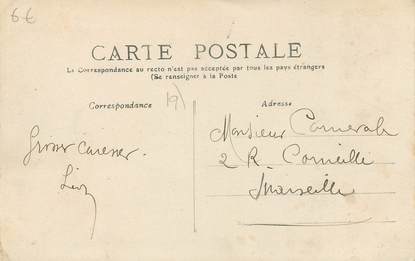 6€
CARTE POSTALE
La Correspondance au recto n'est pas acceptée par tous les pays étrangers
(Se renseigner à la Poste
Correspondance
19)
Adresse
Monsieur
2 R. Corneille
Marseille